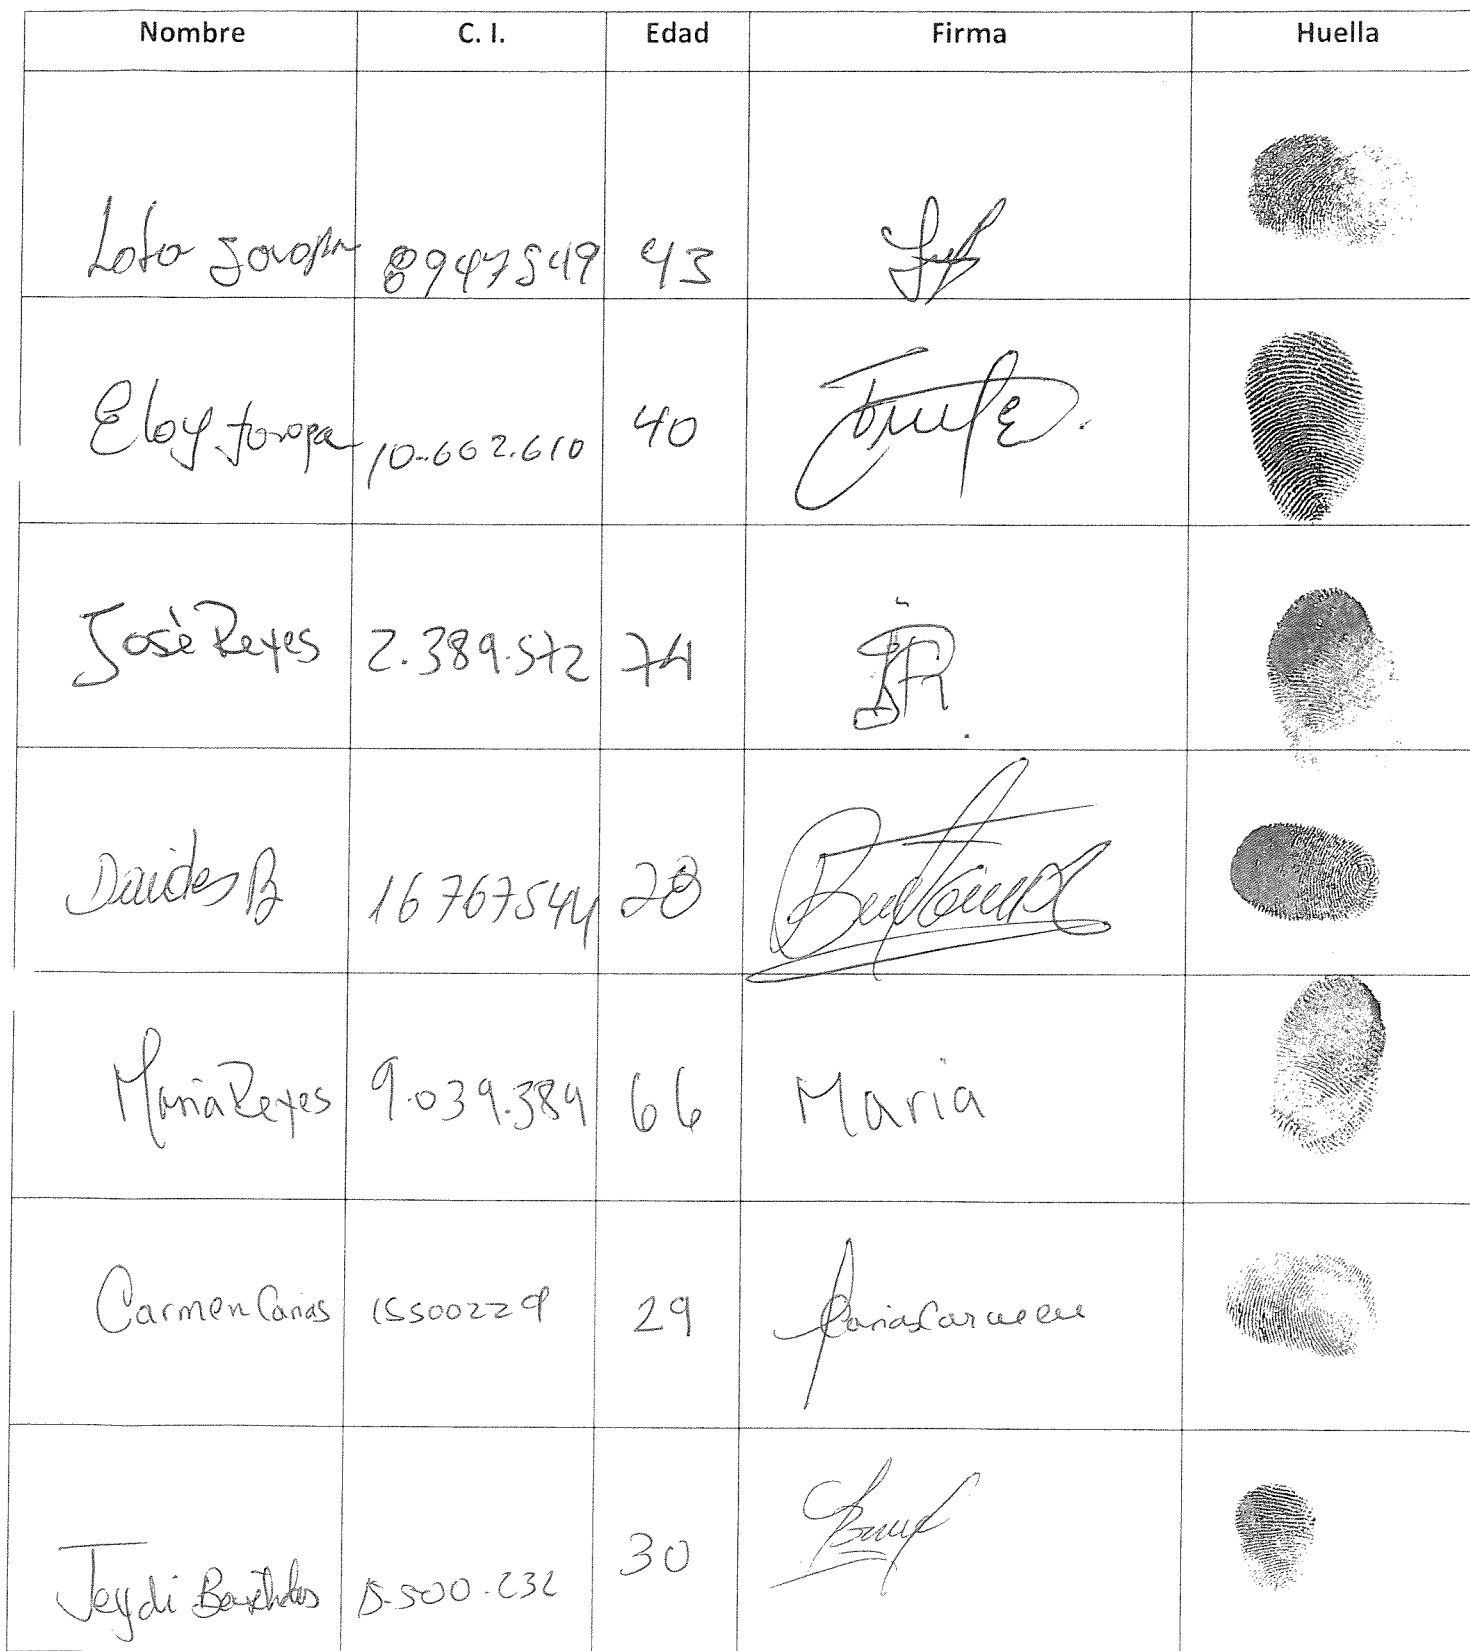 Nombre C. I. Edad Firma Huella
8947549 43
Eloy 10.602.610 40
José Reyes 2.389.572 74
B 16767544 28
Maria Reyes 9.039.389 66 Maria
Carmen Carias 15500229 29 Carias Carmen
Jeydi 15.500.232 30